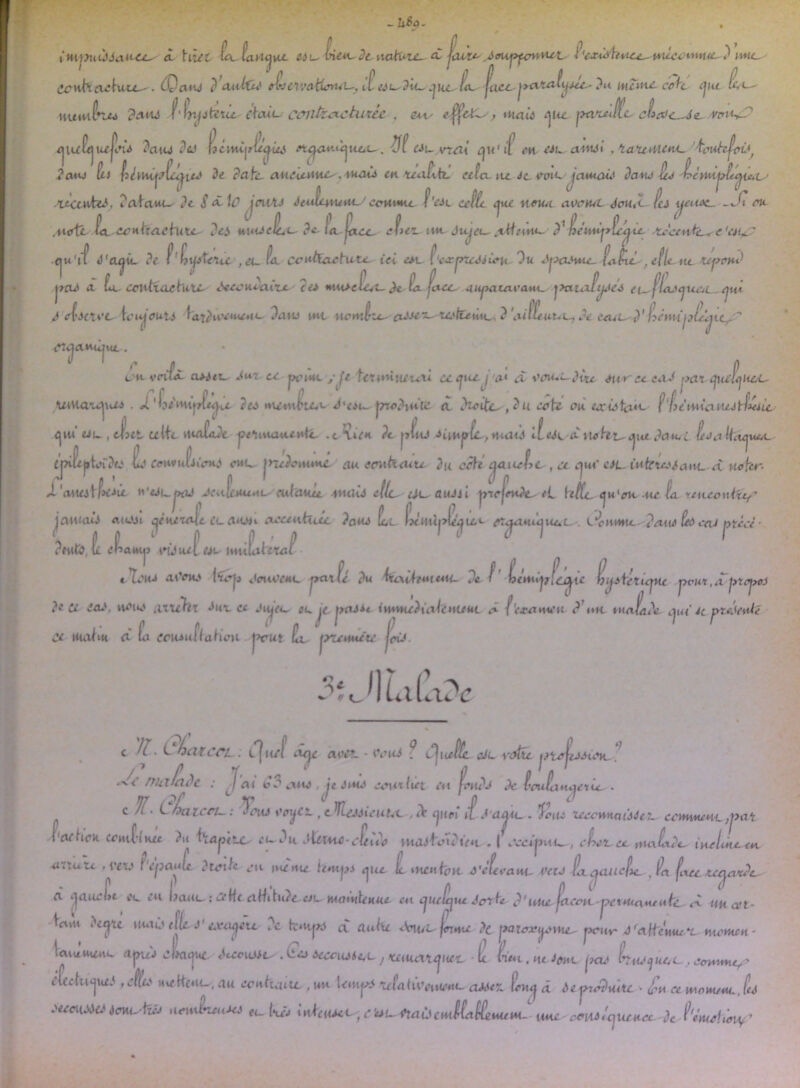 - 469 -
impuissance à tirer la langue est bien de nature à faire soupçonner l'existence méconnue d'une
contracture. Dans d'autres observations, il est dit que la face paralysée du même côté que les
membres dans l'hystérie était contracturée, en effet, mais que pareille chose se voit
quelquefois dans des hémiplégies organiques. Il est vrai qu'il en est ainsi, rarement toutefois,
dans les hémiplégies de date ancienne, mais en réalité cela ne se voit jamais dans les hémiplégies
récentes, datant de 8 à 10 jours seulement comme l'est celle que nous avons sous les yeux. — Si on
note la contracture des muscles de la face chez un sujet atteint d'hémiplégie récente, c'est
qu'il s'agit de l'hystérie, et la contracture ici est l'expression du spasme labié, elle ne répond
pas à la contracture secondaire des muscles de la face auparavant paralysés et flasques qui
s'observe toujours tardivement dans un nombre assez restreint d'ailleurs, de cas d'hémiplégie
organique.
En voilà assez sur ce point ; je terminerai ce que j'ai à vous dire sur ce cas par quelques
remarques. L'hémiplégie des membres s'est produite à droite, du côté où existait l'hémianesthésie
qui est, chez cette malade permanente. Rien de plus simple, mais il est à noter que dans les attaques
épileptoïdes les convulsions ont prédominé au contraire du côté gauche, ce qui est intéressant à noter.
L'anesthésie n'est pas seulement cutanée mais elle est aussi profonde et telle qu'on ne la rencontre
jamais aussi générale et aussi accentuée dans les hémiplégies organiques. Comme dans les cas précé-
dents, le champ visuel est unilatéral.
Nous avons trop souvent parlé du traitement de l'hémiplégie hystérique pour, à propos
de ce cas, nous arrêter sur ce sujet et je passe immédiatement à l'examen d'un malade qui se présente
ce matin à la consultation pour la première fois.
3e Malade
M. Charcot : Quel âge avez-vous ? Quelle est votre profession ?
Le malade : J'ai 63 ans, je suis courtier en fonds de boulangerie.
M. Charcot : Vous voyez, Messieurs, de quoi il s'agit. Vous reconnaissez comment, par
l'action combinée du trapèze et du sterno-cleido mastoïdien, l'occiput, chez ce malade, incline en
arrière, vers l'épaule droite en même temps que le menton s'élevant vers la gauche, la face regarde
à gauche et en haut : cette attitude est maintenue en quelque sorte d'une façon permanente à un cer-
tain degré mais elle s'exagère de temps à autre sous forme de paroxysme pour s'atténuer momen-
tanément après chaque secousse. Ces secousses, remarquez-le bien, ne sont pas brusques, comme
électriques, elles mettent, au contraire, un temps relativement assez long à se produire. En ce moment, les
secousses sont très nombreuses et très intenses, c'est vraisemblablement une conséquence de l'émotion